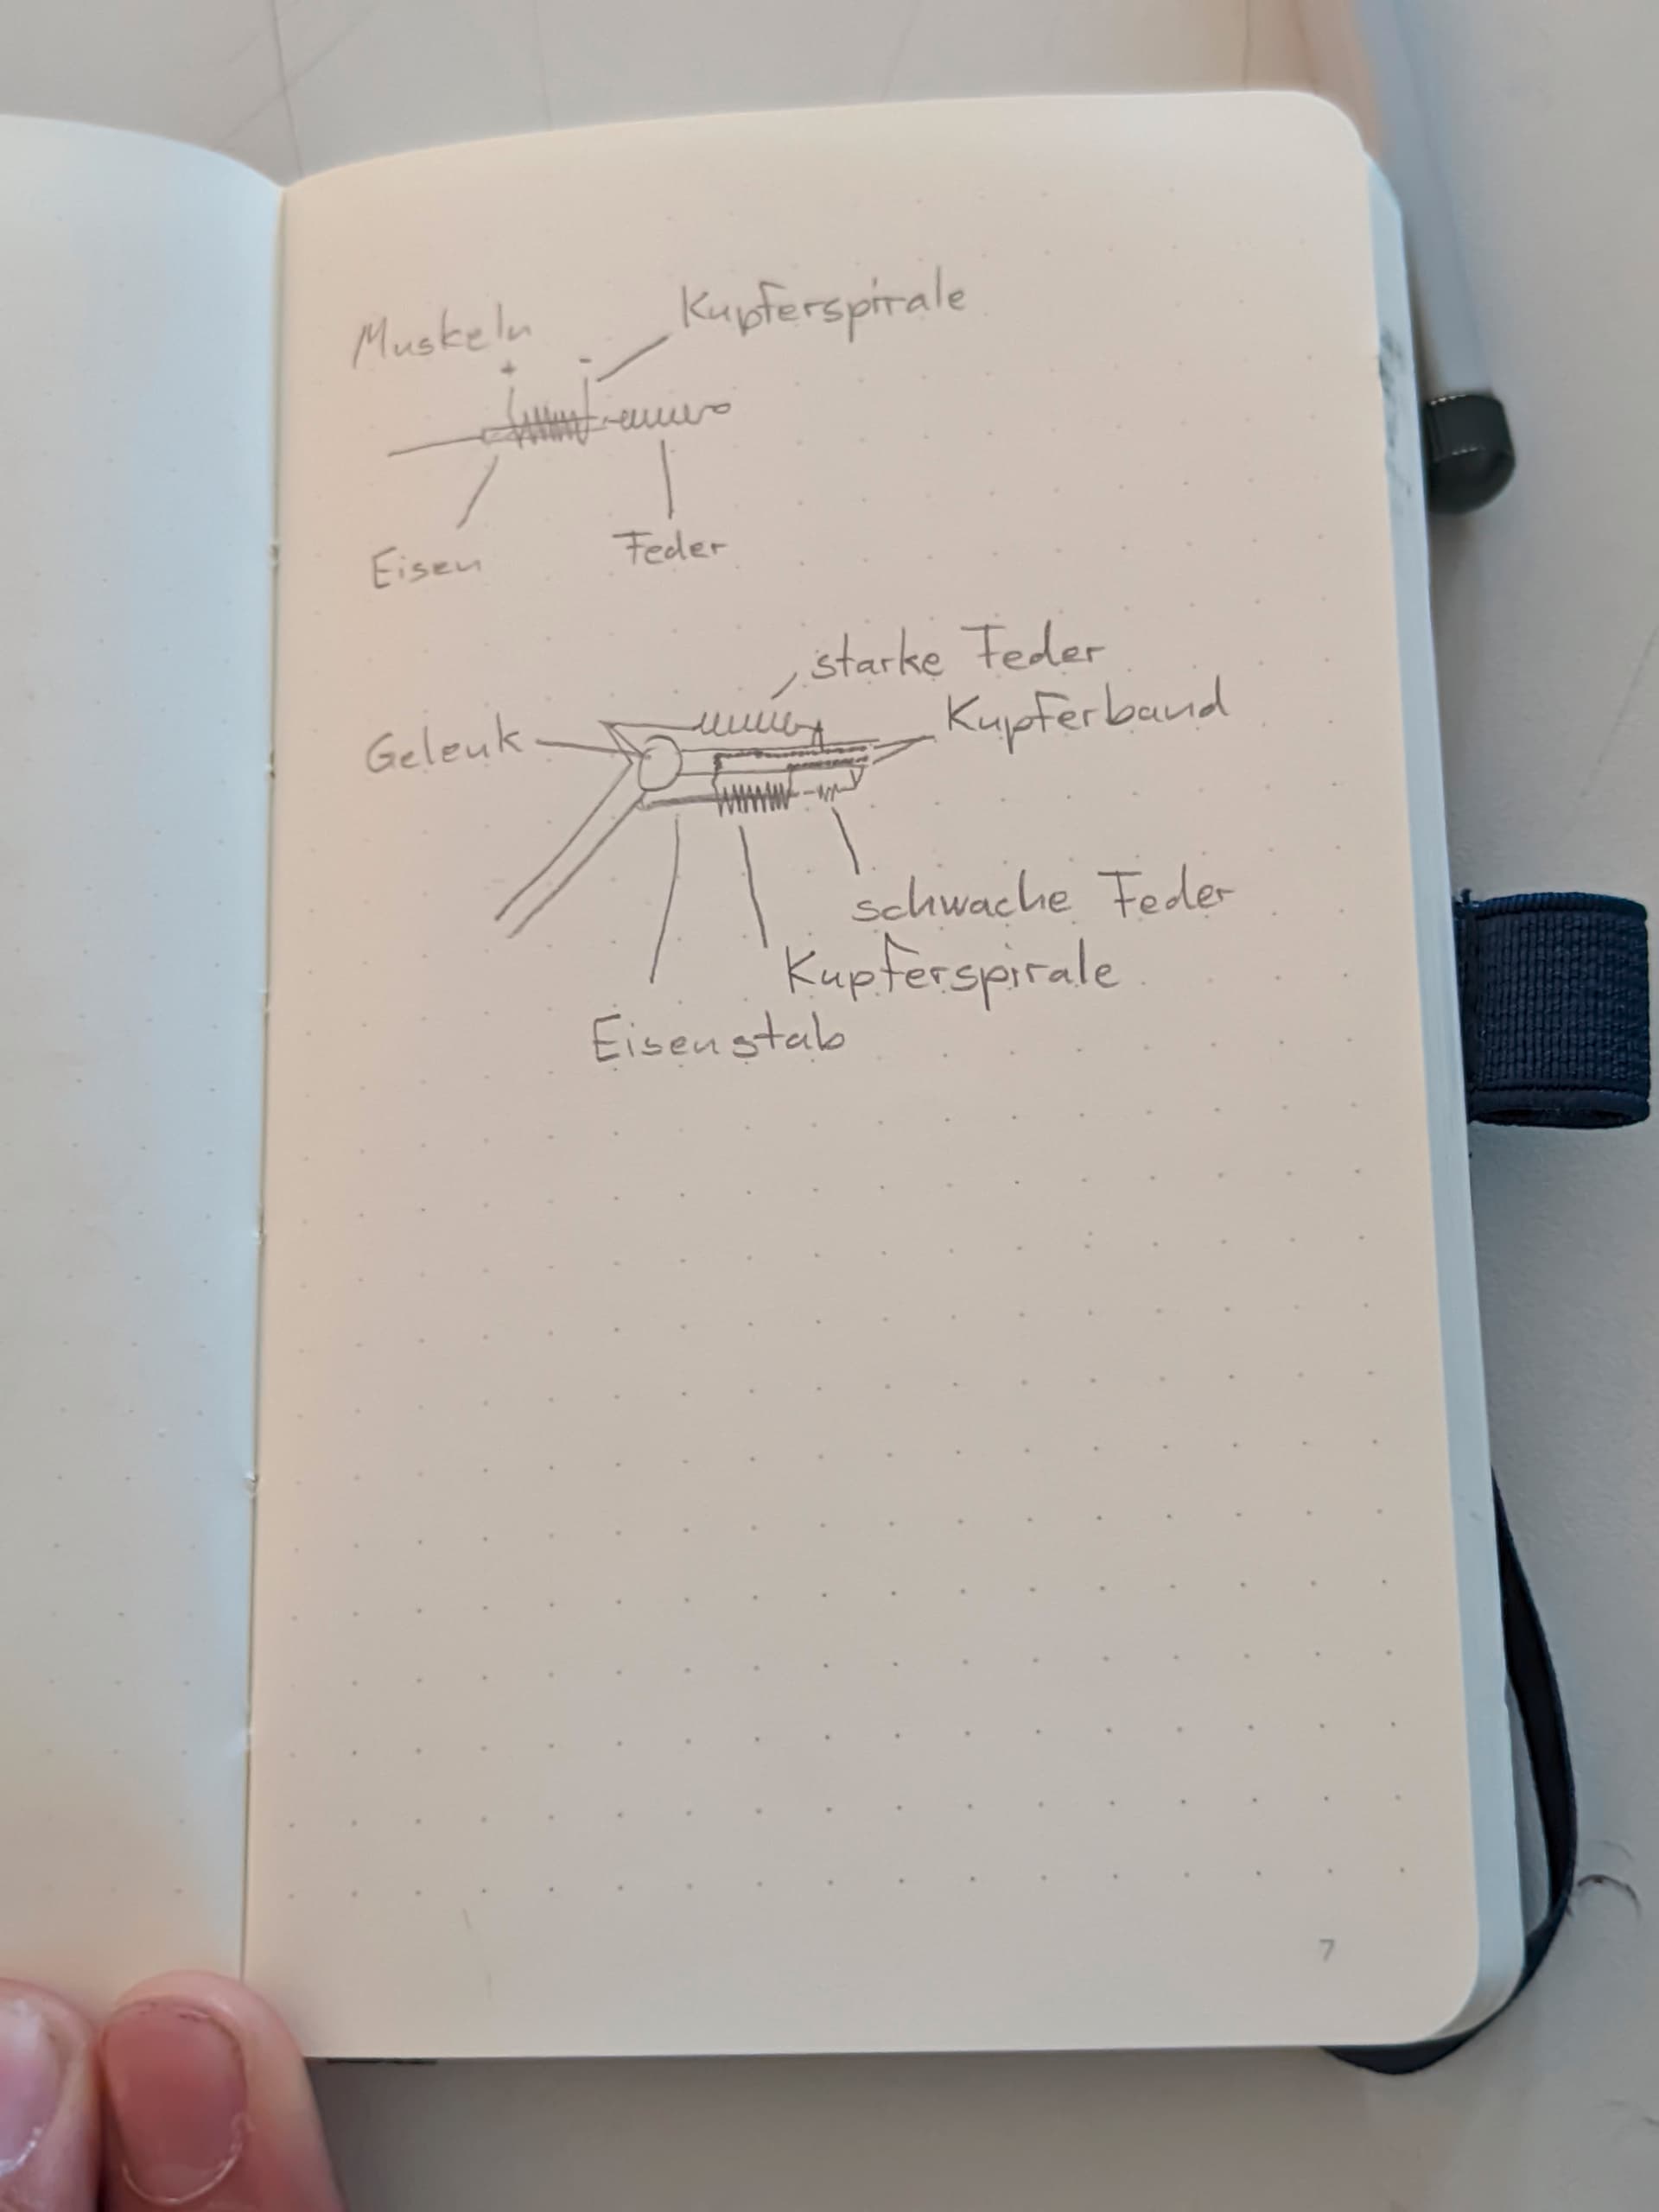 Muskeln
Kupferspirale
+ -
Eisen
Feder
starke Feder
Kupferband
Gelenk
schwache Feder
Kupferspirale
Eisenstab
7